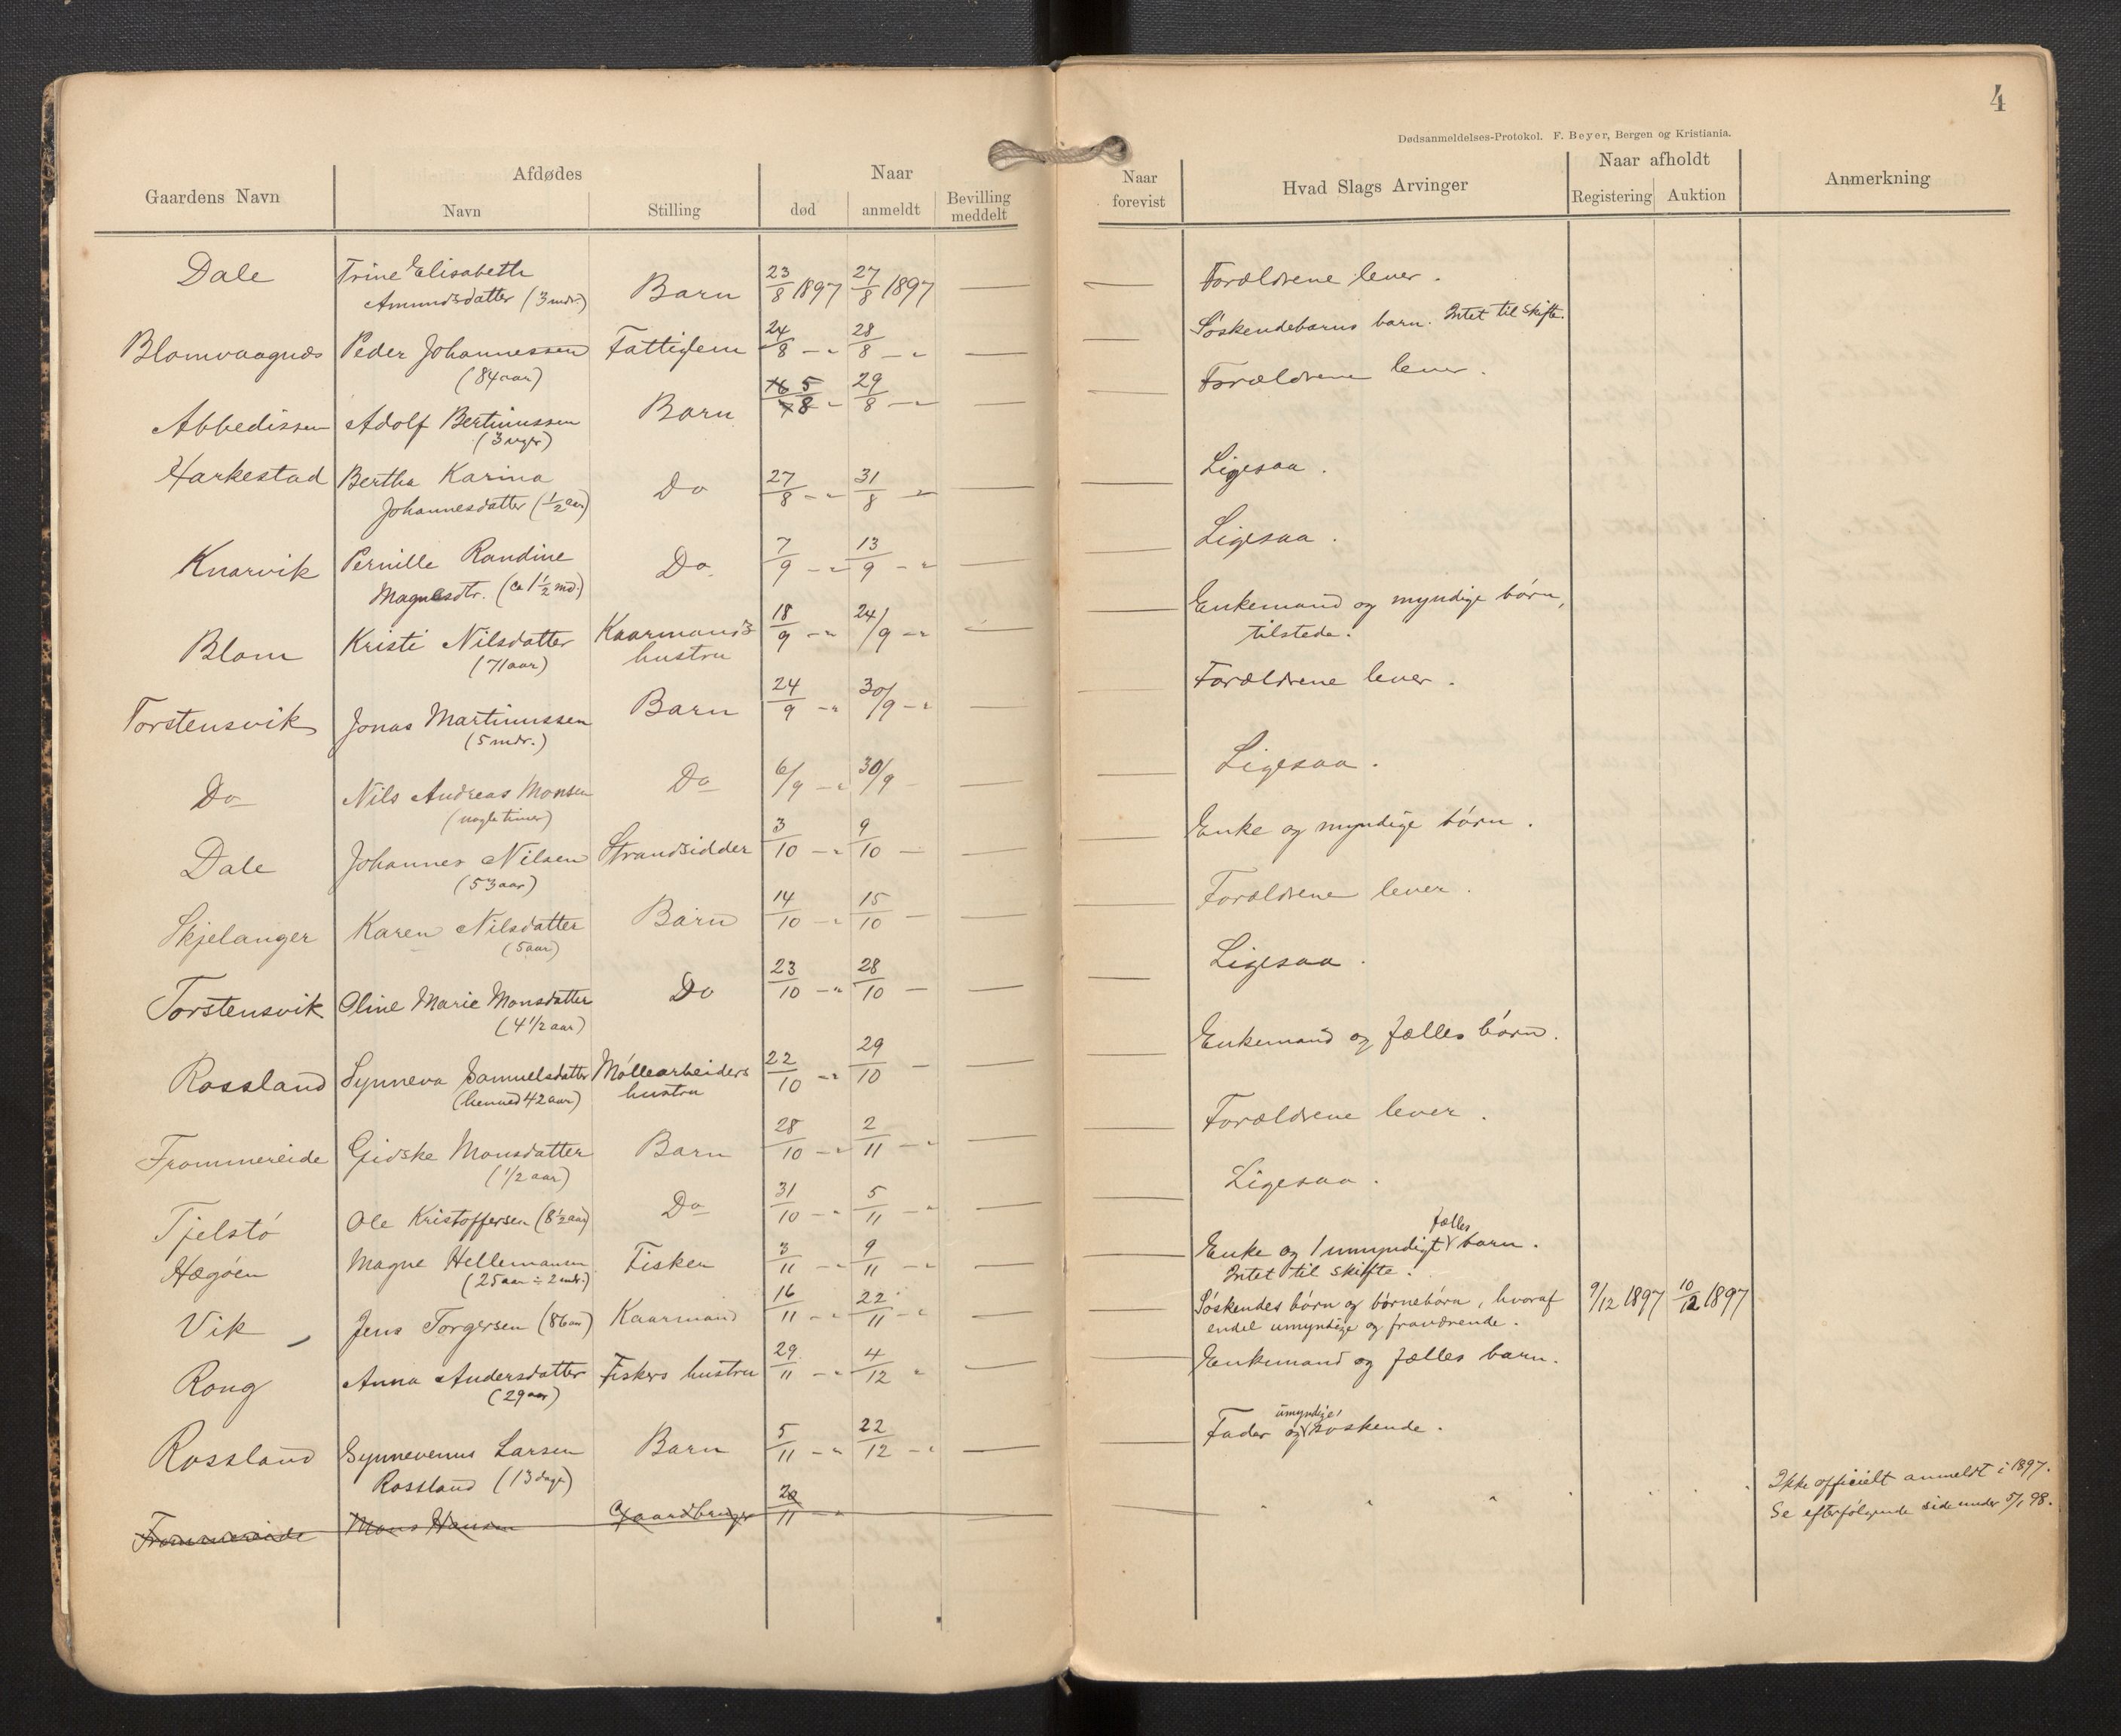 4
Dødsanmeldelses-Protokol. F. Beyer, Bergen og Kristiania.
Gaardens Navn | Afdødes Navn | Stilling | Naar død | anmeldt | Bevilling meddelt | Naar forevist | Hvad Slags Arvinger | Naar afholdt Registering | Auktion | Anmerkning
Dale | Trine Elisabeth | Barn | 23/8 1897 | 27/8 1897 | — | — | Forældrene lever.
Amundsdatter (3 mdr.)
Blomvaagnæs | Peder Johannessen | Fattiglem | 24/8 -"- | 28/8 -"- | — | — | Söskendebarns barn. Intet til skifte.
(84 aar)
Abbedissen | Adolf Bertinussen | Barn | 5/8 -"- | 29/8 -"- | — | — | Forældrene lever.
(3 uger)
Harkestad | Bertha Karina | Do | 27/8 -"- | 31/8 -"- | — | — | Ligesaa.
Johannesdatter (1/2 aar)
Knarvik | Pernille Randine | Do | 7/9 -"- | 13/9 -"- | — | — | Ligesaa.
Magnesdtr. (ca 1 1/2 md.)
Blom | Kristi Nilsdatter | Kaarmands | 18/9 -"- | 24/9 -"- | — | — | Enkemand og myndige börn,
(71 aar) | hustru | tilstede.
Torstensvik | Jonas Martinussen | Barn | 24/9 -"- | 30/9 -"- | — | — | Forældrene lever.
(5 mdr.)
Do | Nils Andreas Monsen | Do | 6/9 -"- | 30/9 | — | — | Ligesaa.
(nogle timer)
Dale | Johannes Nilsen | Strandsidder | 3/10 -"- | 9/10 — | — | — | Enke og myndige börn.
(53 aar)
Skjelanger | Karen Nilsdatter | Barn | 14/10 -"- | 15/10 — | — | — | Forældrene lever.
(5 aar)
Torstensvik | Oline Marie Monsdatter | Do | 23/10 -"- | 28/10 — | — | — | Ligesaa.
(4 1/2 aar)
Rossland | Synneva Samuelsdatter | Möllearbeiders | 22/10 -"- | 29/10 — | — | — | Enkemand og fælles börn.
(henved 42 aar) | hustru
Frommereide | Gidske Monsdatter | Barn | 28/10 -"- | 2/11 -"- | — | — | Forældrene lever.
(1/2 aar)
Tjelstö | Ole Kristoffersen (8 1/2 aar) | Do | 31/10 -"- | 5/11 -"- | — | — | Ligesaa.
Hægöen | Magne Hellemansen | Fisker | 3/11 -"- | 9/11 -"- | — | — | Enke og 1 umyndigt fælles barn.
(25 aar ÷ 2 mdr.) | Intet til skifte.
Vik | Jens Torgersen (86 aar) | Kaarmand | 16/11 -"- | 22/11 -"- | Söskendes börn og börnebörn, hvoraf | 9/12 1897 | 10/12 1897
endel umyndige og fraværende.
Rong | Anna Andersdatter | Fiskers hustru | 29/11 -"- | 4/12 " | — | — | Enkemand og fælles barn.
(29 aar)
Rossland | Synnevenus Larsen | Barn | 5/11 -"- | 22/12 -"- | — | — | Fader og umyndige söskende.
Rossland (13 dage)
Frommereide | Mons Hansen | Gaardbruger | 20/11 -"- | Ikke officielt anmeldt i 1897.
Se efterfölgende side under 5/1 98.